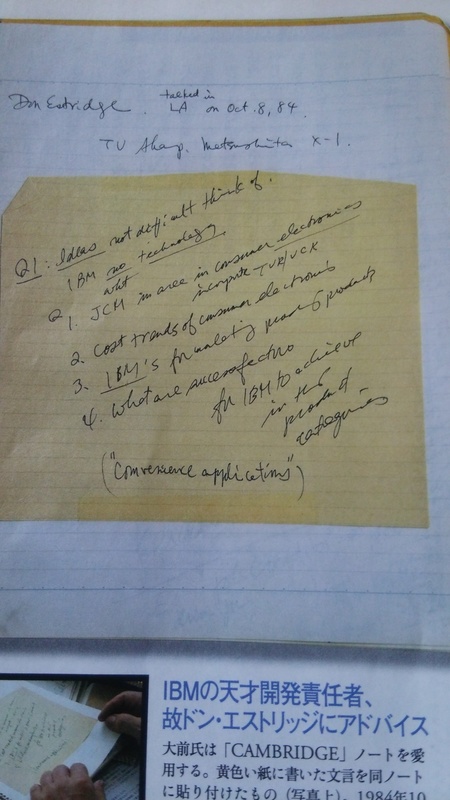 Don Estridge. talked in LA on Oct. 8, 84.
TV Sharp. Matsushita X-1.
Q1: Ideas not difficult think of.
IBM no technology
what
Q 1. JCM in area in consumer electronics
incorporate TVR/VCR
2. Cost trends of consumer electronics
3. IBM's for making products
4. What are
for IBM to achieve
in this
product
categories
("Convenience applications")
IBMの天才開発責任者、
故ドン・エストリッジにアドバイス
大前氏は「CAMBRIDGE」ノートを愛
用する。黄色い紙に書いた文言を同ノート
に貼り付けたもの（写真上）。1984年10